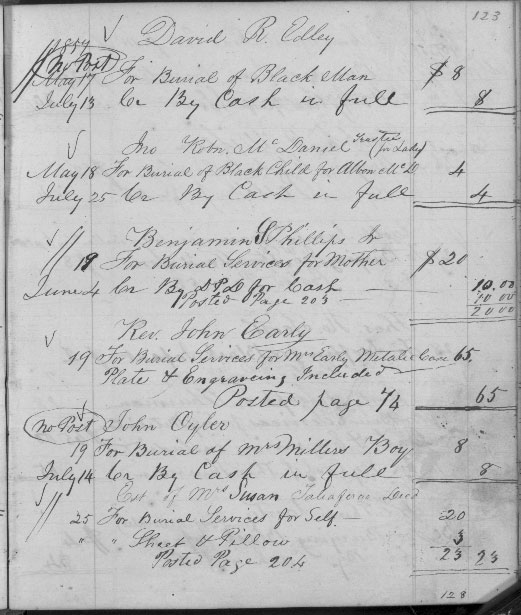 123
1859 David R. Edley
No Post
May 17 For Burial of Black Man $8
July 13 Cr By Cash in full 8
Jno Robn. Mc Daniel Trustee (for Lady)
May 18 For Burial of Black Child for Albon Mc D 4
July 25 Cr By Cash in full 4
Benjamin S Phillips Jr
19 For Burial Services for Mother $20
June 4 Cr By D.P.D for Cash — 10.00
Posted Page 203 — 10.00
20.00
Rev. John Early
19 For Burial Services for Mrs Early Metalic Case 65
Plate & Engraveing Included
Posted page 74 65
No Post John Oyler
19 For Burial of Mrs Millers Boy 8
July 14 Cr By Cash in full 8
Est. of Mrs Susan Taliaferro Decd
25 For Burial Services for Self — 20
" " Sheet & Pillow 3
Posted Page 204 23 23
128